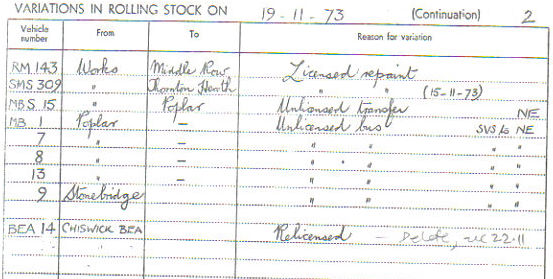 VARIATIONS IN ROLLING STOCK ON 19-11-73 (Continuation) 2
Vehicle number From To Reason for variation
RM 143 Works Middle Row Licensed repaint
SMS 309 " Thornton Heath " " (15-11-73)
MBS 15 " Poplar Unlicensed transfer NE
MB 1 Poplar - Unlicensed bus SVS to NE
7 " - " " " "
8 " - " " " "
13 " - " " " "
9 Stonebridge " " " "
BEA 14 CHISWICK BEA Relicensed - Delete, 22.11